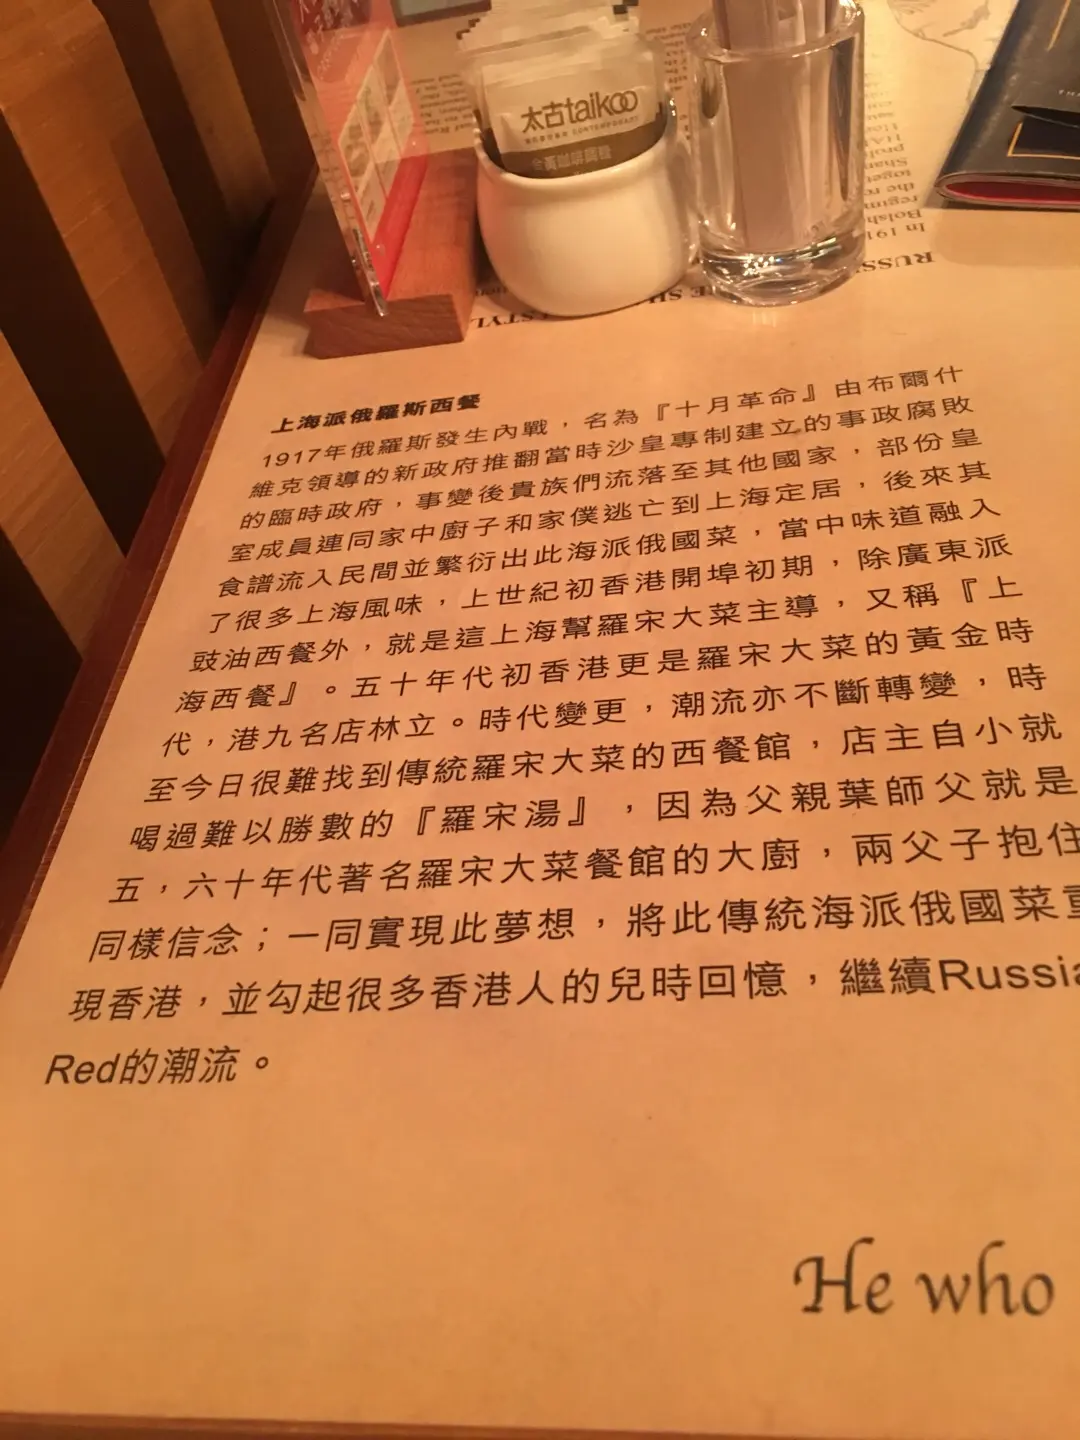 太古taikoo
CONTEMPORARY
RUSSI
E SH
STYL
In 191
Bolsh
regim
the re
toget
Shan
上海派俄羅斯西餐
1917年俄羅斯發生內戰，名為『十月革命』由布爾什
維克領導的新政府推翻當時沙皇專制建立的事政腐敗
的臨時政府，事變後貴族們流落至其他國家，部份皇
室成員連同家中廚子和家僕逃亡到上海定居，後來其
食譜流入民間並繁衍出此海派俄國菜，當中味道融入
了很多上海風味，上世紀初香港開埠初期，除廣東派
豉油西餐外，就是這上海幫羅宋大菜主導，又稱『上
海西餐』。五十年代初香港更是羅宋大菜的黃金時
代，港九名店林立。時代變更，潮流亦不斷轉變，時
至今日很難找到傳統羅宋大菜的西餐館，店主自小就
喝過難以勝數的『羅宋湯』，因為父親葉師父就是
五，六十年代著名羅宋大菜餐館的大廚，兩父子抱住
同樣信念；一同實現此夢想，將此傳統海派俄國菜重
現香港，並勾起很多香港人的兒時回憶，繼續Russia
Red的潮流。
He who